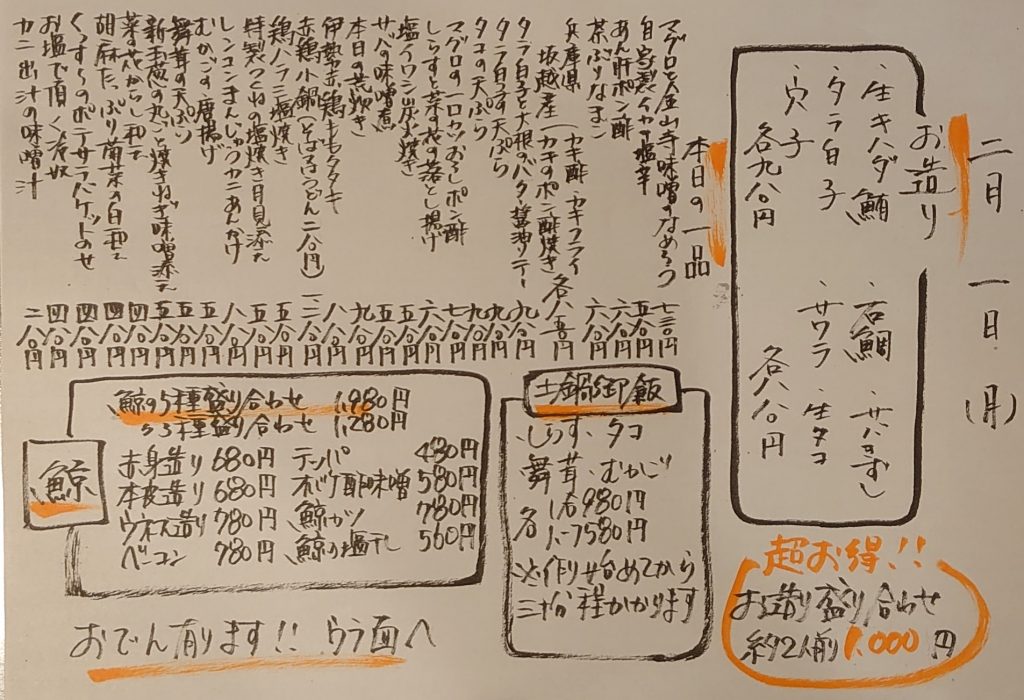 二月 一日 (月)
お造り
・生キハダ鮪
・タラ白子
・穴子
各九八〇円
・石鯛 ・サバきずし
・サワラ ・生タコ
各八八〇円
超お得!!
お造り盛り合わせ
約2人前 1,000円
本日の一品
マグロと金山寺味噌のなめろう 七三〇円
自家製イカの塩辛 五八〇円
あん肝ポン酢 六八〇円
茶ぶりなまこ 六八〇円
兵庫県坂越産(カキ酢・カキフライ・カキのポン酢焼き) 各八五〇円
タラ白子と大根のバター醤油ソテー 九八〇円
タラ白子の天ぷら 九八〇円
タコの天ぷら 九八〇円
マグロの一口カツおろしポン酢 七八〇円
しらすと菜の花の落とし揚げ 六八〇円
塩イワシ炭火焼き 五八〇円
サバの味噌煮 五八〇円
本日の煮炊き 九八〇円
伊勢赤鶏ももタタキ 八八〇円
赤鶏小鍋(そばorうどん二八〇円)
鶏ハラミ塩焼き 五八〇円
特製つくねの塩焼き月見添え 五八〇円
レンコンまんじゅうカニあんかけ 八八〇円
むかごの唐揚げ 五八〇円
舞茸の天ぷら 五八〇円
新玉葱の丸ごと焼きねぎ味噌添え 五八〇円
菜の花からし和え 四八〇円
胡麻たっぷり菊菜の白和え 四八〇円
くぅすーのポテサラバケットのせ 四八〇円
お塩で頂く冷奴 四八〇円
カニ出汁の味噌汁 二八〇円
土鍋御飯
・しらす・タコ
・舞茸・むかご
各 1.6 980円
1.7 580円
※作り始めてから
三十分程かかります
鯨
鯨の5種盛り合わせ 1,980円
〃3種盛り合わせ 1,280円
赤身造り 680円
本皮造り 680円
ウネス造り 780円
ベーコン 780円
テッパ 480円
オバケ酢味噌 580円
鯨カツ 780円
鯨の塩干し 560円
おでん有ります!! ウラ面へ